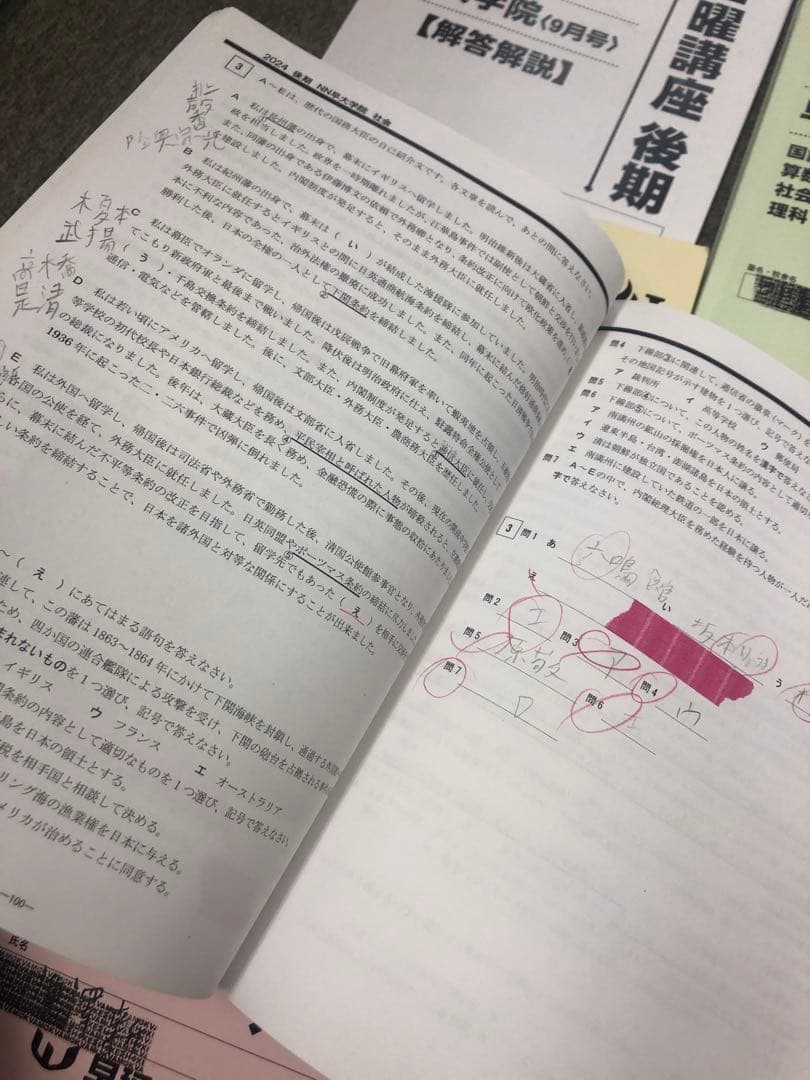 学院〈9月号〉
【解答解説】
曜講座 後期
国
算数
社会
理科
2024 後期 NN早大学院 社会
3 A～Eは、歴代の国務大臣の自己紹介文です。各文章を読んで、あとの問に答えなさい。
A 私は長州藩の出身で、幕末にイギリスへ留学しました。明治維新後は大蔵省に入省し、
政を担当しました。政界を一時期離れましたが、江華島事件では副使として朝鮮と交渉を
また、同藩の出身である伊藤博文の依頼で外務卿となり、条約改正に向けて欧化政策を進め、
を建設しました。内閣制度が発足すると、そのまま外務大臣に就任しました。
B 私は紀州藩の出身で、幕末は（ い ）が結成した海援隊に参加していました。明治
外務大臣に就任するとイギリスとの間に日英通商航海条約を締結し、幕末に結んだ
本に不利な内容であった、治外法権の撤廃に成功しました。また、同年に起こった日清戦争
勝利した後、日本の全権の一人として②下関条約を締結しました。
C 私は幕臣でオランダに留学し、帰国後は戊辰戦争で旧幕府軍を率いて蝦夷地を占領し、
てこもり新政府軍と最後まで戦いました。降伏後は明治政府に仕え、駐露特命全権公使として
（ う ）・千島交換条約を締結しました。また、内閣制度が発足すると③逓信大臣に就任し、
通信・電気などを管轄しました。後に、文部大臣・外務大臣・農商務大臣を歴任しました。
D 私は若い頃にアメリカへ留学し、帰国後は文部省に入省しました。その後、現在の
等学校の初代校長や日本銀行総裁などを務め、④平民宰相と呼ばれた人物が暗殺されると、
の総裁になりました。後年は、大蔵大臣を長く務め、金融恐慌の際に事態の収拾にあたりました
1936年に起こった二・二六事件で凶弾に倒れました。
E 私は外国へ留学し、帰国後は司法省や外務省で勤務した後、清国公使館参事官となり、
各国の公使を経て、外務大臣に就任しました。日英同盟や⑤ポーツマス条約の締結に尽力しました
らに、幕末に結んだ不平等条約の改正を目指して、留学先でもあった（ え ）を相手に
しい条約を締結することで、日本を諸外国と対等な関係にすることが出来ました。
陸奥宗光
榎本
武揚
高橋
是清
～（ え ）にあてはまる語句を答えなさい。
連して、この藩は1863～1864年にかけて下関海峡を封鎖し、通過する
ため、四か国の連合艦隊による攻撃を受け、下関の砲台を占拠される
まれないものを1つ選び、記号で答えなさい。
イギリス ウ フランス エ オーストラリア
関条約の内容として適切なものを1つ選び、記号で答えなさい。
島を日本の領土とする。
税を相手国と相談して決める。
リング海の漁業権を日本に与える。
メリカが治めることに同意する。
―100―
問4 下線部③に関連して、逓信省の徽章（マーク）
その地図記号が示す建物を1つ選び、記号で答えな
ア 裁判所 イ 高等学校 ウ 郵便局
問5 下線部④について、この人物の姓名を漢字で答え
問6 下線部⑤について、ポーツマス条約の内容として適切
ア 南満州の鉱山の採掘権を日本に譲る。
イ 遼東半島・台湾・澎湖諸島を日本の領土とする。
ウ 清は朝鮮が独立国であることを認める。
エ 南満州に建設していた鉄道の一部を日本に譲る。
問7 A～Eの中で、内閣総理大臣を務めた経験を持つ人物が一人だ
字で答えなさい。
3 問1 あ 六鳴館 い 坂本りょう う
え
問2 エ 問3 ア 問4 ウ
問5 原敬 問6 エ
問7 D
氏名